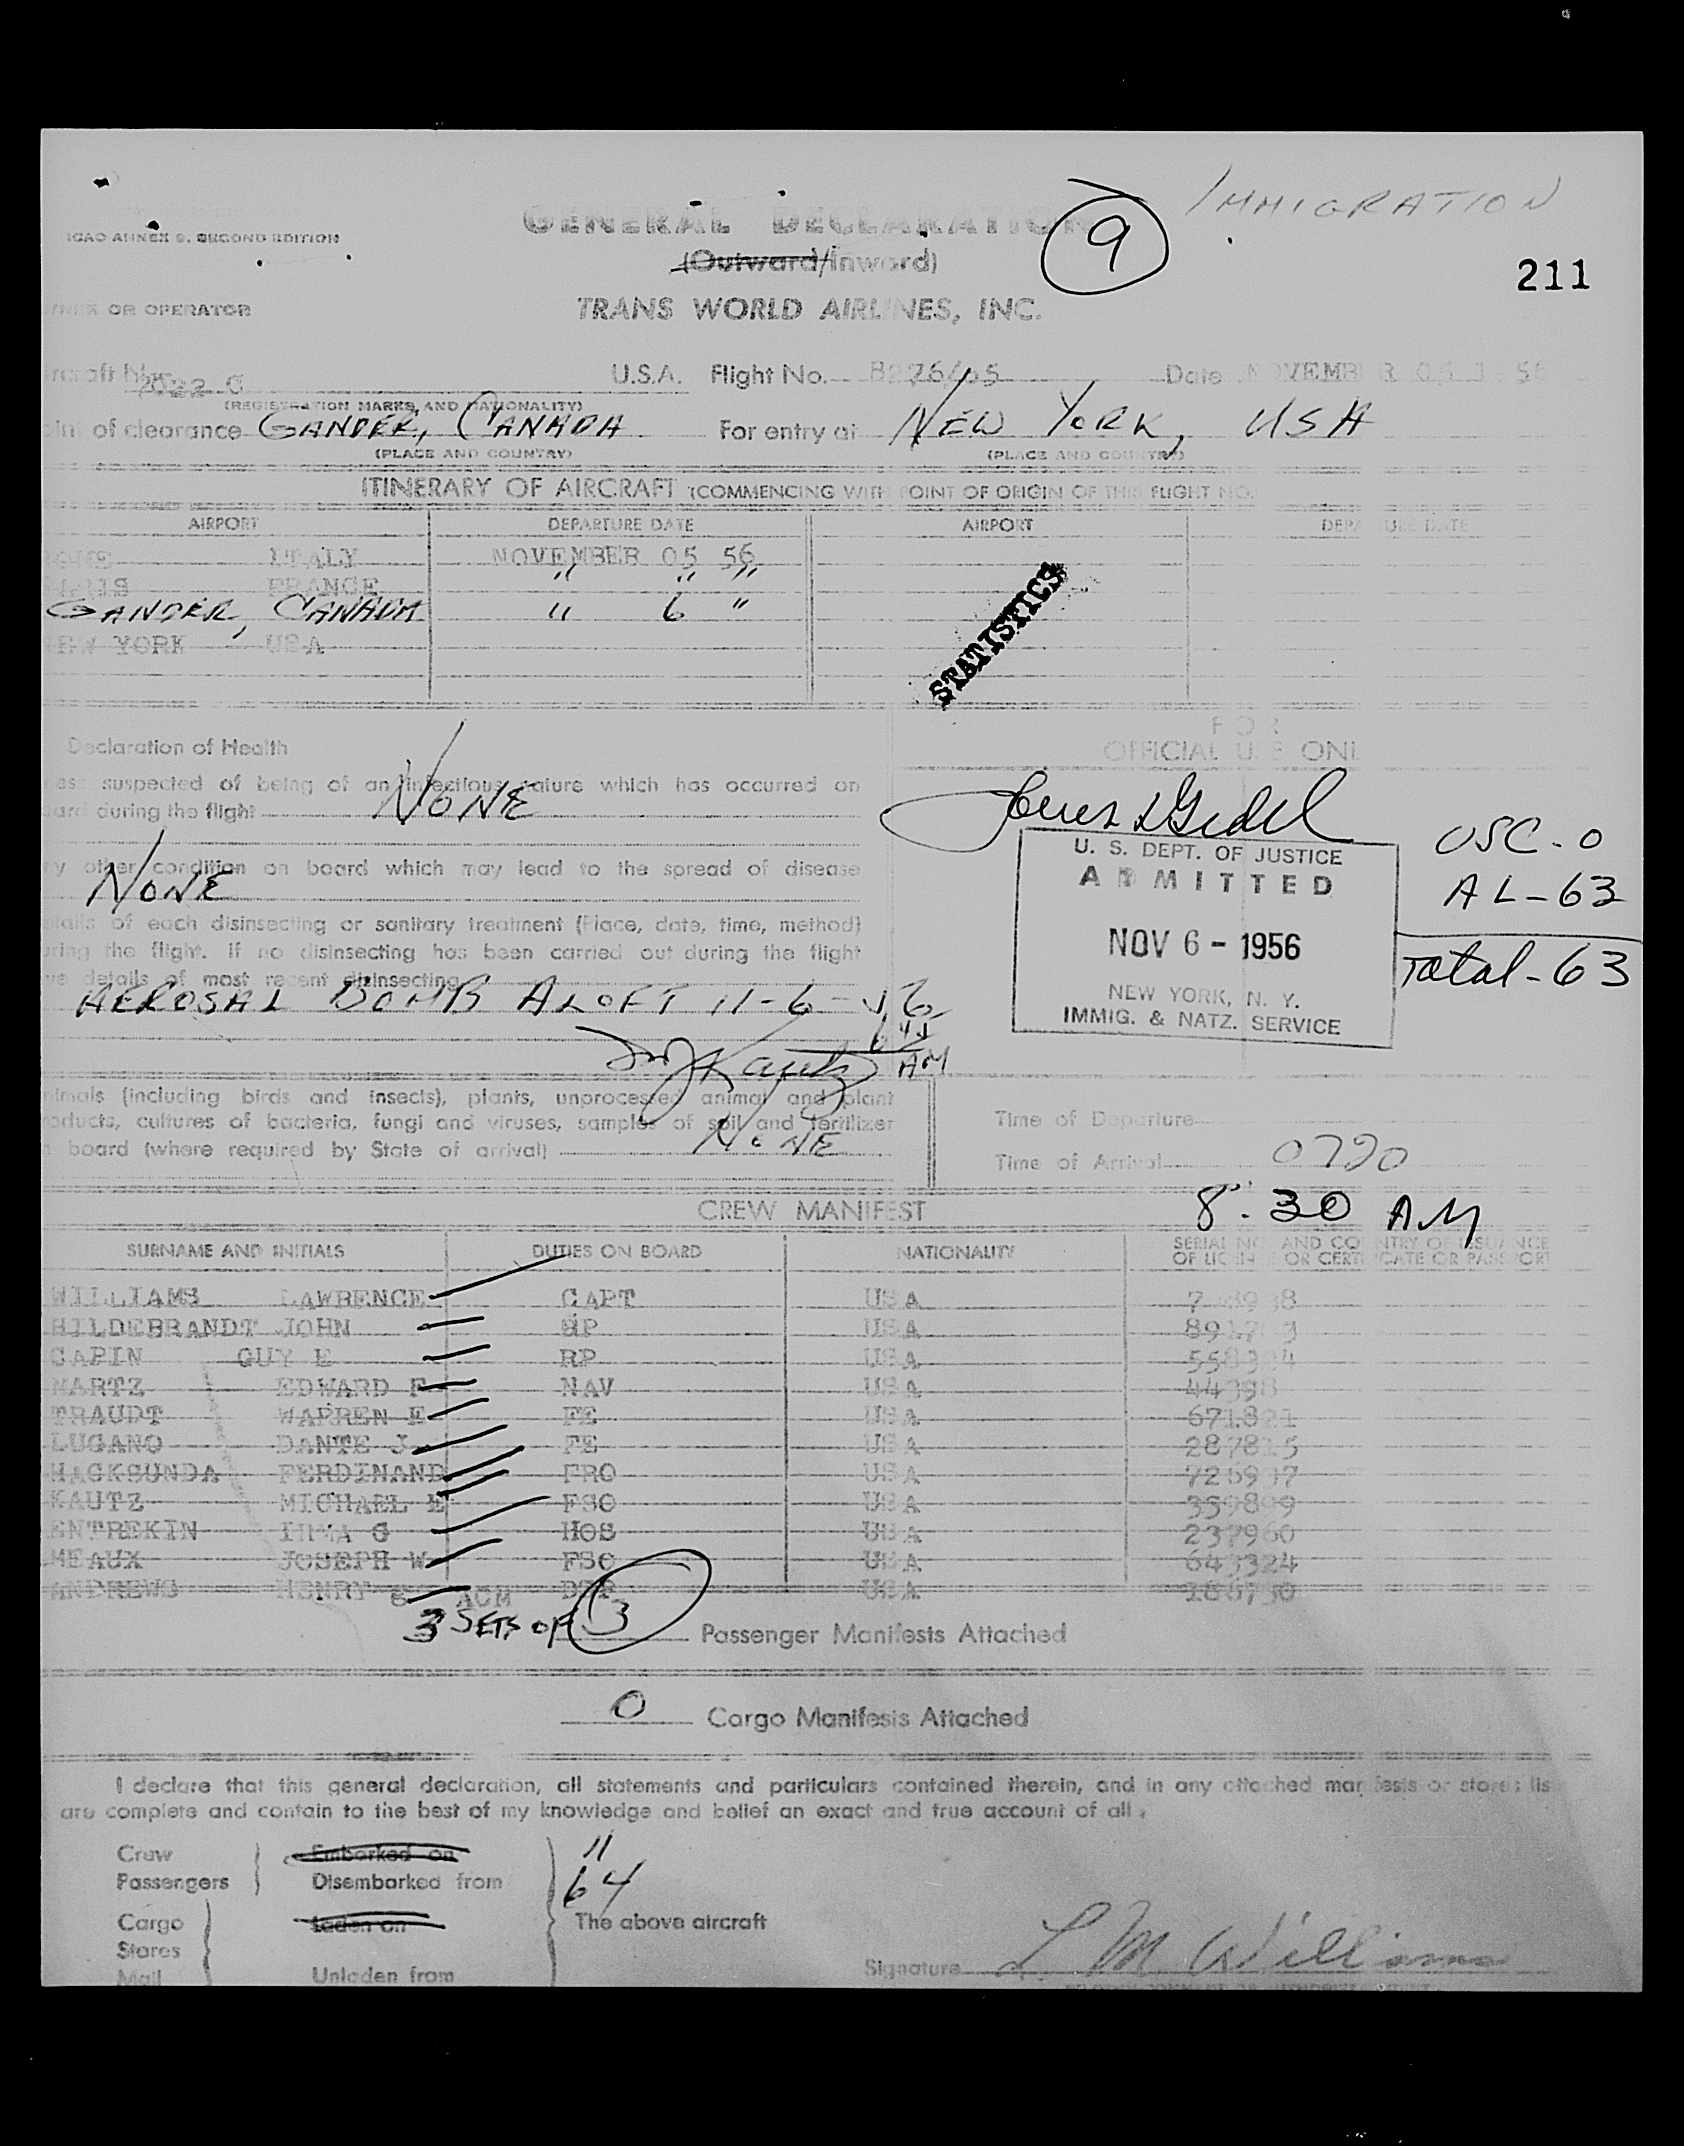 IMMIGRATION
GENERAL DECLARATION 9
ICAO ANNEX 9, SECOND EDITION
(Outward/Inward)
211
OR OPERATOR
TRANS WORLD AIRLINES, INC.
U.S.A. Flight No. Date NOVEMBER
(REGISTRATION MARKS AND NATIONALITY)
of clearance GANDER, CANADA For entry at NEW YORK, USA
(PLACE AND COUNTRY) (PLACE AND COUNTRY)
ITINERARY OF AIRCRAFT (COMMENCING WITH POINT OF ORIGIN OF THIS FLIGHT NO.
AIRPORT DEPARTURE DATE AIRPORT DEPARTURE DATE
ITALY NOVEMBER 05 56
FRANCE " " "
GANDER, CANADA " 6 "
NEW YORK USA
STATISTICS
Declaration of Health
FOR
OFFICIAL USE ONL
suspected of being of an infectious nature which has occurred on
during the flight NONE
other condition on board which may lead to the spread of disease
NONE
of each disinsecting or sanitary treatment (Place, date, time, method)
the flight. If no disinsecting has been carried out during the flight
details of most recent disinsecting
AEROSAL BOMB ALOFT 11-6-
AM
U. S. DEPT. OF JUSTICE
ADMITTED
NOV 6 - 1956
NEW YORK, N. Y.
IMMIG. & NATZ. SERVICE
USC - 0
AL - 63
Total - 63
(including birds and insects), plants, unprocessed animal and plant
cultures of bacteria, fungi and viruses, samples of soil and fertilizer
board (where required by State of arrival) NONE
Time of Departure
Time of Arrival 0720
8:30 AM
CREW MANIFEST
SURNAME AND INITIALS DUTIES ON BOARD NATIONALITY SERIAL NO. AND COUNTRY OF ISSUANCE
OF LICENSE OR CERTIFICATE OR PASSPORT
WILLIAMS LAWRENCE CAPT USA
HILDEBRANDT JOHN USA
CAPIN GUY E RP USA
EDWARD F NAV USA
TRAUDT WARREN E FE USA
LUGANO DANTE J FE USA
HACKSUNDA FERDINAND FRO USA
KAUTZ MICHAEL E FSO USA
ENTREKIN IRMA G HOS USA 237960
MEAUX JOSEPH W FSO USA 643324
ANDREWS HENRY S ACM USA
3 SETS OF 3 Passenger Manifests Attached
0 Cargo Manifests Attached
I declare that this general declaration, all statements and particulars contained therein, and in any attached manifests or stores lis
are complete and contain to the best of my knowledge and belief an exact and true account of all
Crew Embarked on 11
Passengers Disembarked from 64
Cargo Laden on The above aircraft
Stores
Mail Unladen from
Signature L M Williams